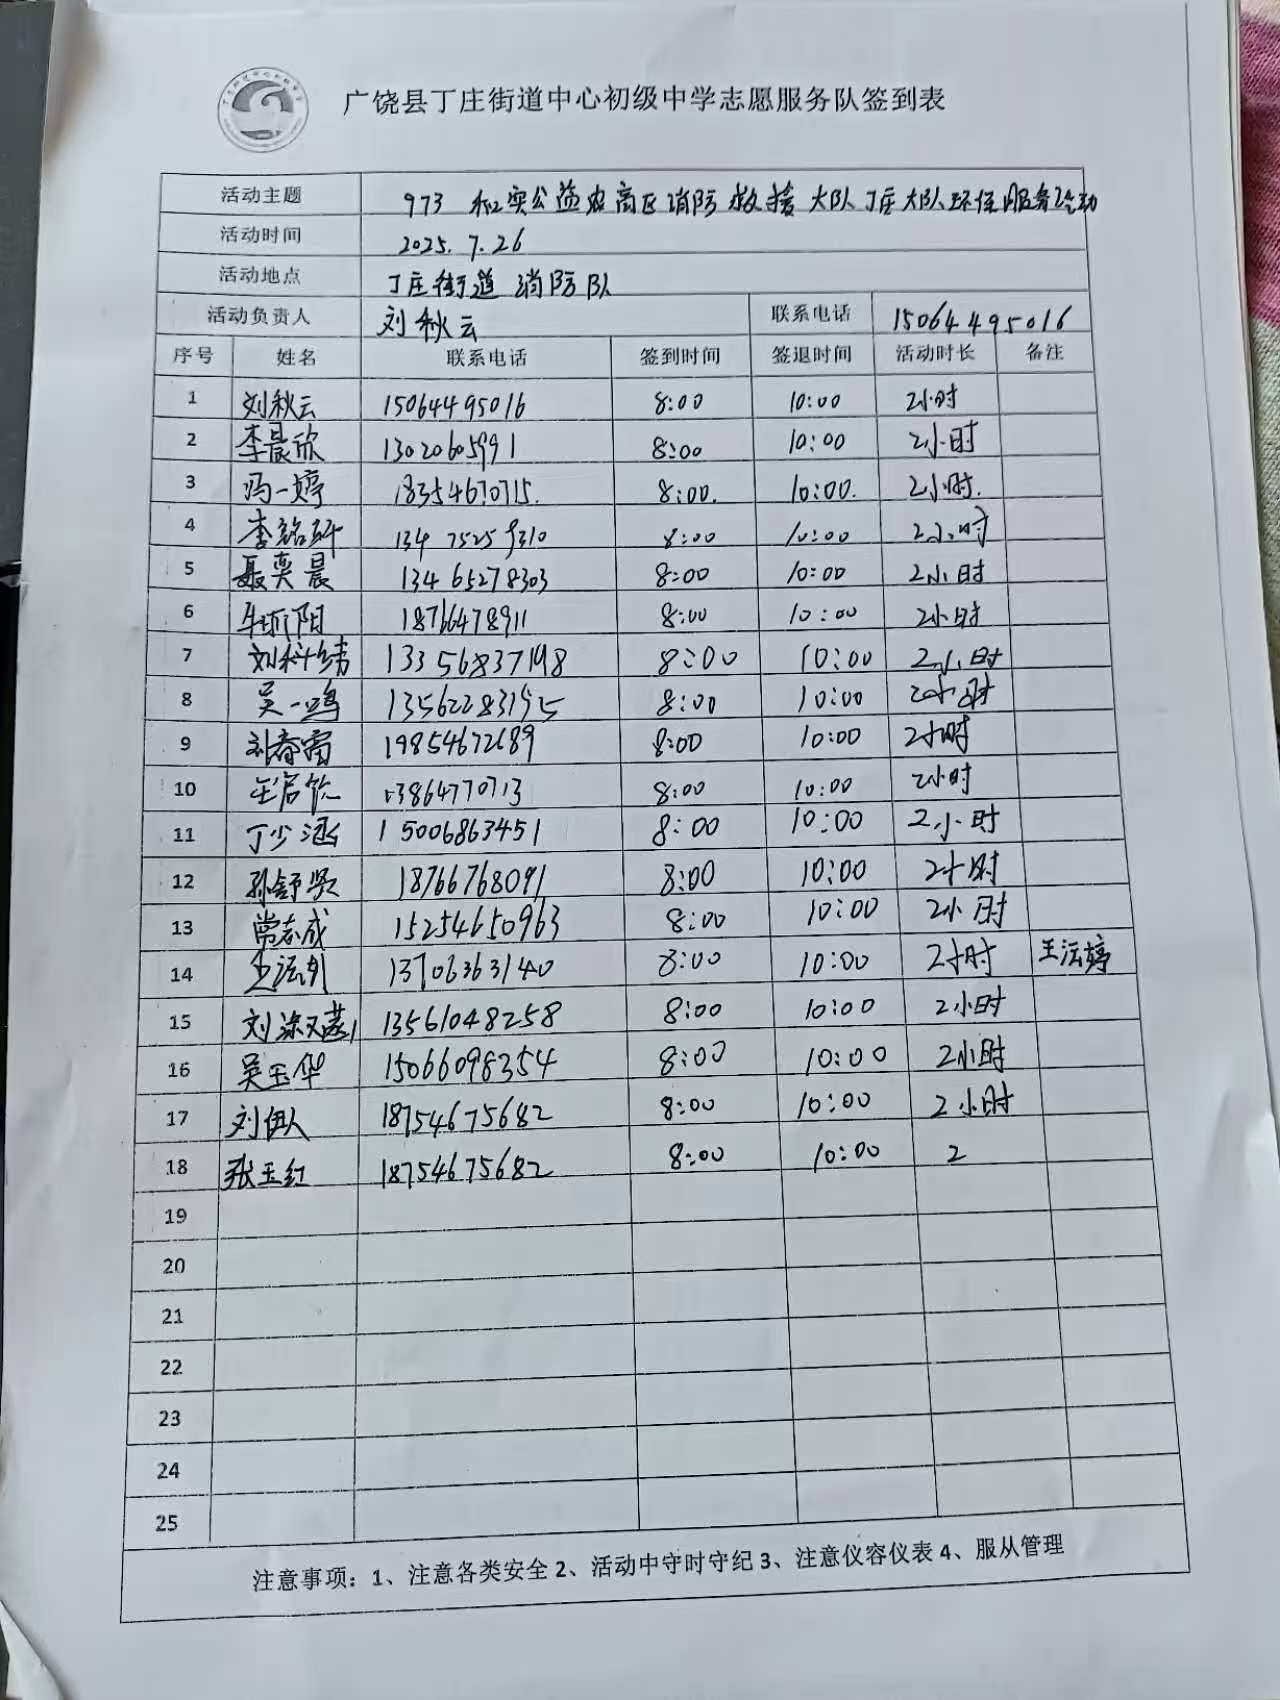 广饶县丁庄街道中心初级中学志愿服务队签到表
活动主题 973 和实公益农高区消防救援大队丁庄大队环保服务活动
活动时间 2025.7.26
活动地点 丁庄街道 消防队
活动负责人 刘秋云 联系电话 15064495016
序号 姓名 联系电话 签到时间 签退时间 活动时长 备注
1 刘秋云 15064495016 8:00 10:00 2小时
2 李晨欣 13020605991 8:00 10:00 2小时
3 冯一婷 18354670715. 8:00. 10:00. 2小时.
4 李铭轩 134 7525 9310 8:00 10:00 2小时
5 聂奕晨 13465278303 8:00 10:00 2小时
6 18766478911 8:00 10:00 2小时
7 刘科纬 13356837198 8:00 10:00 2小时
8 吴一鸣 13562283195 8:00 10:00 2小时
9 刘春雷 19854672689 8:00 10:00 2小时
10 13864770713 8:00 10:00 2小时
11 丁少涵 15006863451 8:00 10:00 2小时
12 孙舒贤 18766768091 8:00 10:00 2小时
13 常志成 15254650963 8:00 10:00 2小时
14 13706363140 8:00 10:00 2小时 王沄婷
15 13561048258 8:00 10:00 2小时
16 吴玉华 15066098354 8:00 10:00 2小时
17 刘伊人 18754675682 8:00 10:00 2小时
18 张玉红 18754675682 8:00 10:00 2
19
20
21
22
23
24
25
注意事项：1、注意各类安全 2、活动中守时守纪 3、注意仪容仪表 4、服从管理